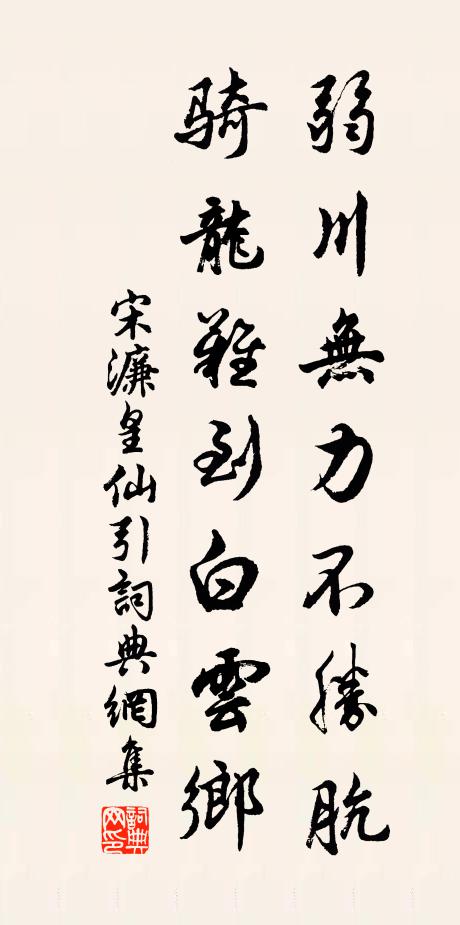 弱川無力不勝航
騎龍難到白雲鄉
宋濂皇仙引詞典網集
詞典
网印